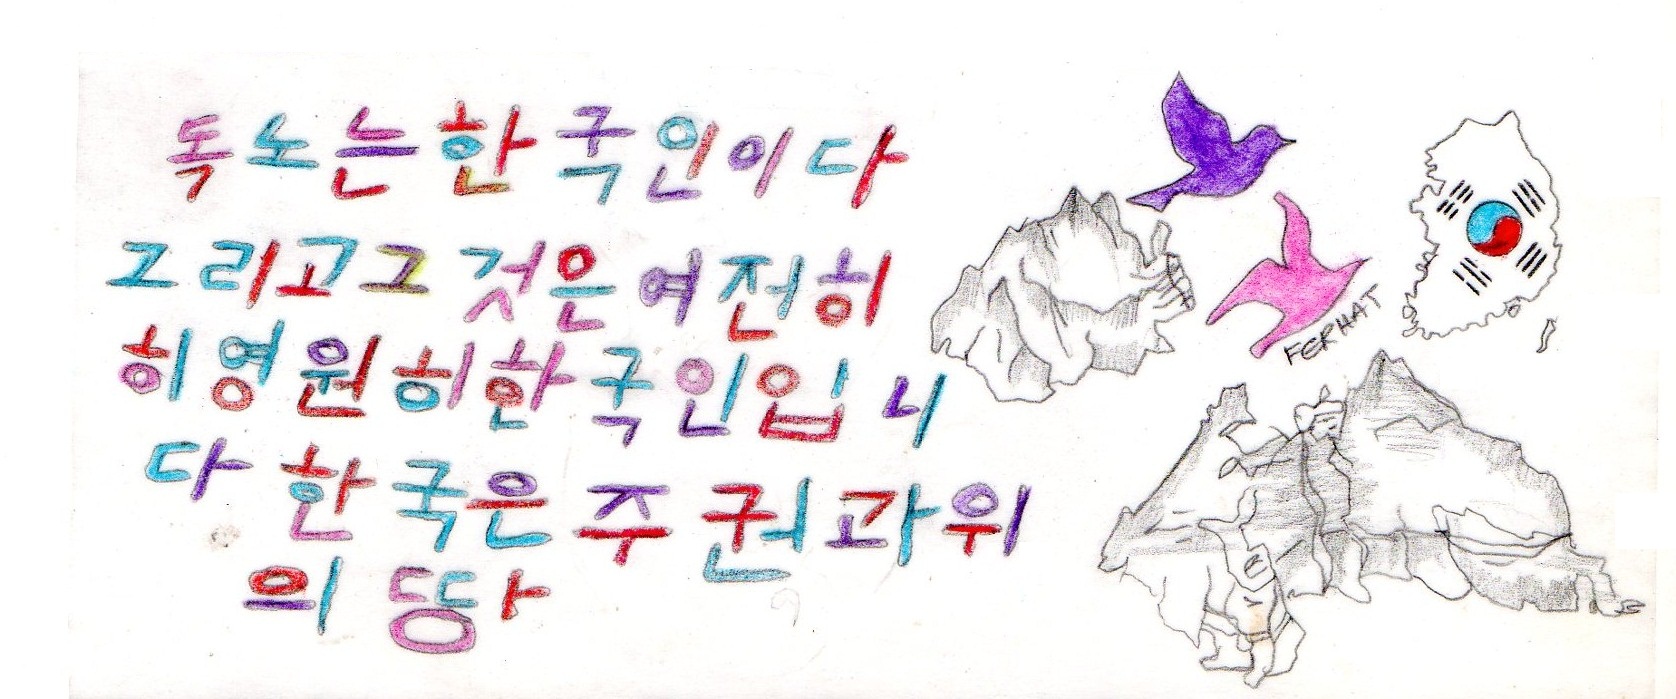 독노는한국인이다
그리고그 것은여전히
히영원히한국인입니
다 한국은주권과위
의땅
FERHAT